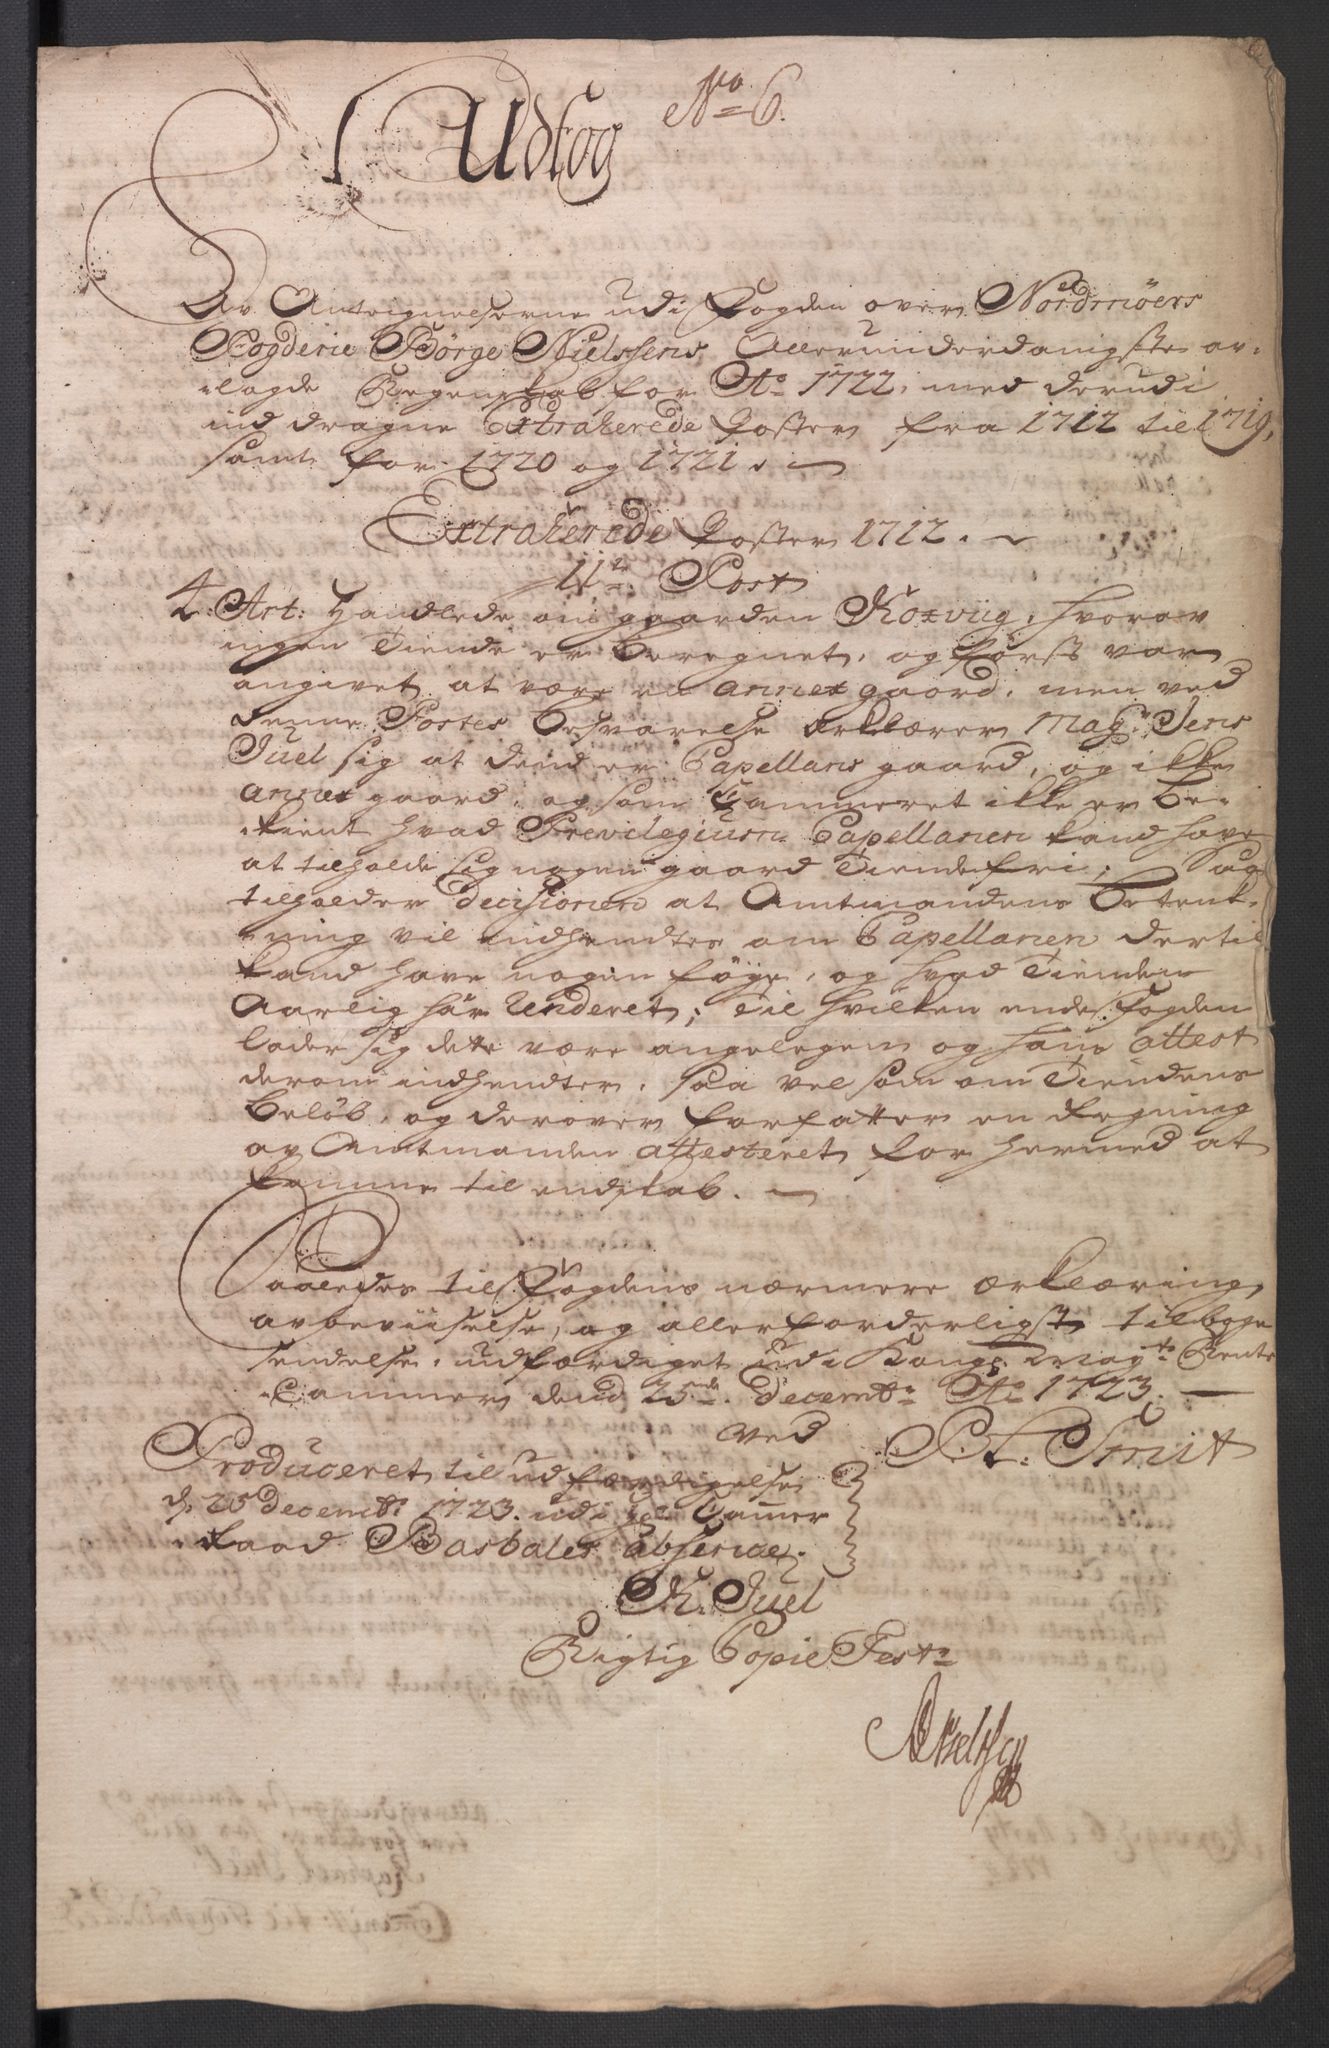 No 6.
Udtog
Av Antegnelserne udi Fogden over Nordmöers
Fogderie Börge Nielssens Allerunderdanigste av-
lagde Regenskab for Ao 1722, med derudi
inddragne Extraherede Poster fra 1712 til 1719,
samt for 1720 og 1721.
Extraherede Poster 1712.
11te Post
4. Art: Handlede om gaarden Koxviig, hvorav
ingen Tiende er beregnet, og först var
angivet at være en annex gaard, men ved
denne Postes besvarelse erklærer Mag: Jens
Juel sig at dend er Capellans gaard, og ikke
annex gaard, og som Cammeret ikke er be-
kient hvad Previlegium Capellanen kand have
at tilholde sig nogen gaard Tiendefri; Saa
tilholder Decisionen at Amtmandens betenk-
ning vil indhendtes om Capellanen dertil
kand have nogen föye, og hvad Tienden
Aarlig har Underet; Til hvilken ende Fogden
lader sig dette være angelegen og hans attest
derom indhendter, saa vel som om Tiendens
belöb, og derover forfatter en Regning
av Amtmanden attesteret, for hermed at
komme til endskab.
Saaledes til Fogdens nærmere erklæring,
avbeviiselse, og allerforderligst tilbage
sendelse, udfærdiget udi Kongl: Mayts Rente
Cammer dend 25de Decembr Ao 1723.
ved
P. C. Smit
Produceret til udfærdigelse
d. 25 Decembr 1723. udi Cammer
Raad Basballes absence.
K. Juel
Rigtig Copie Test: